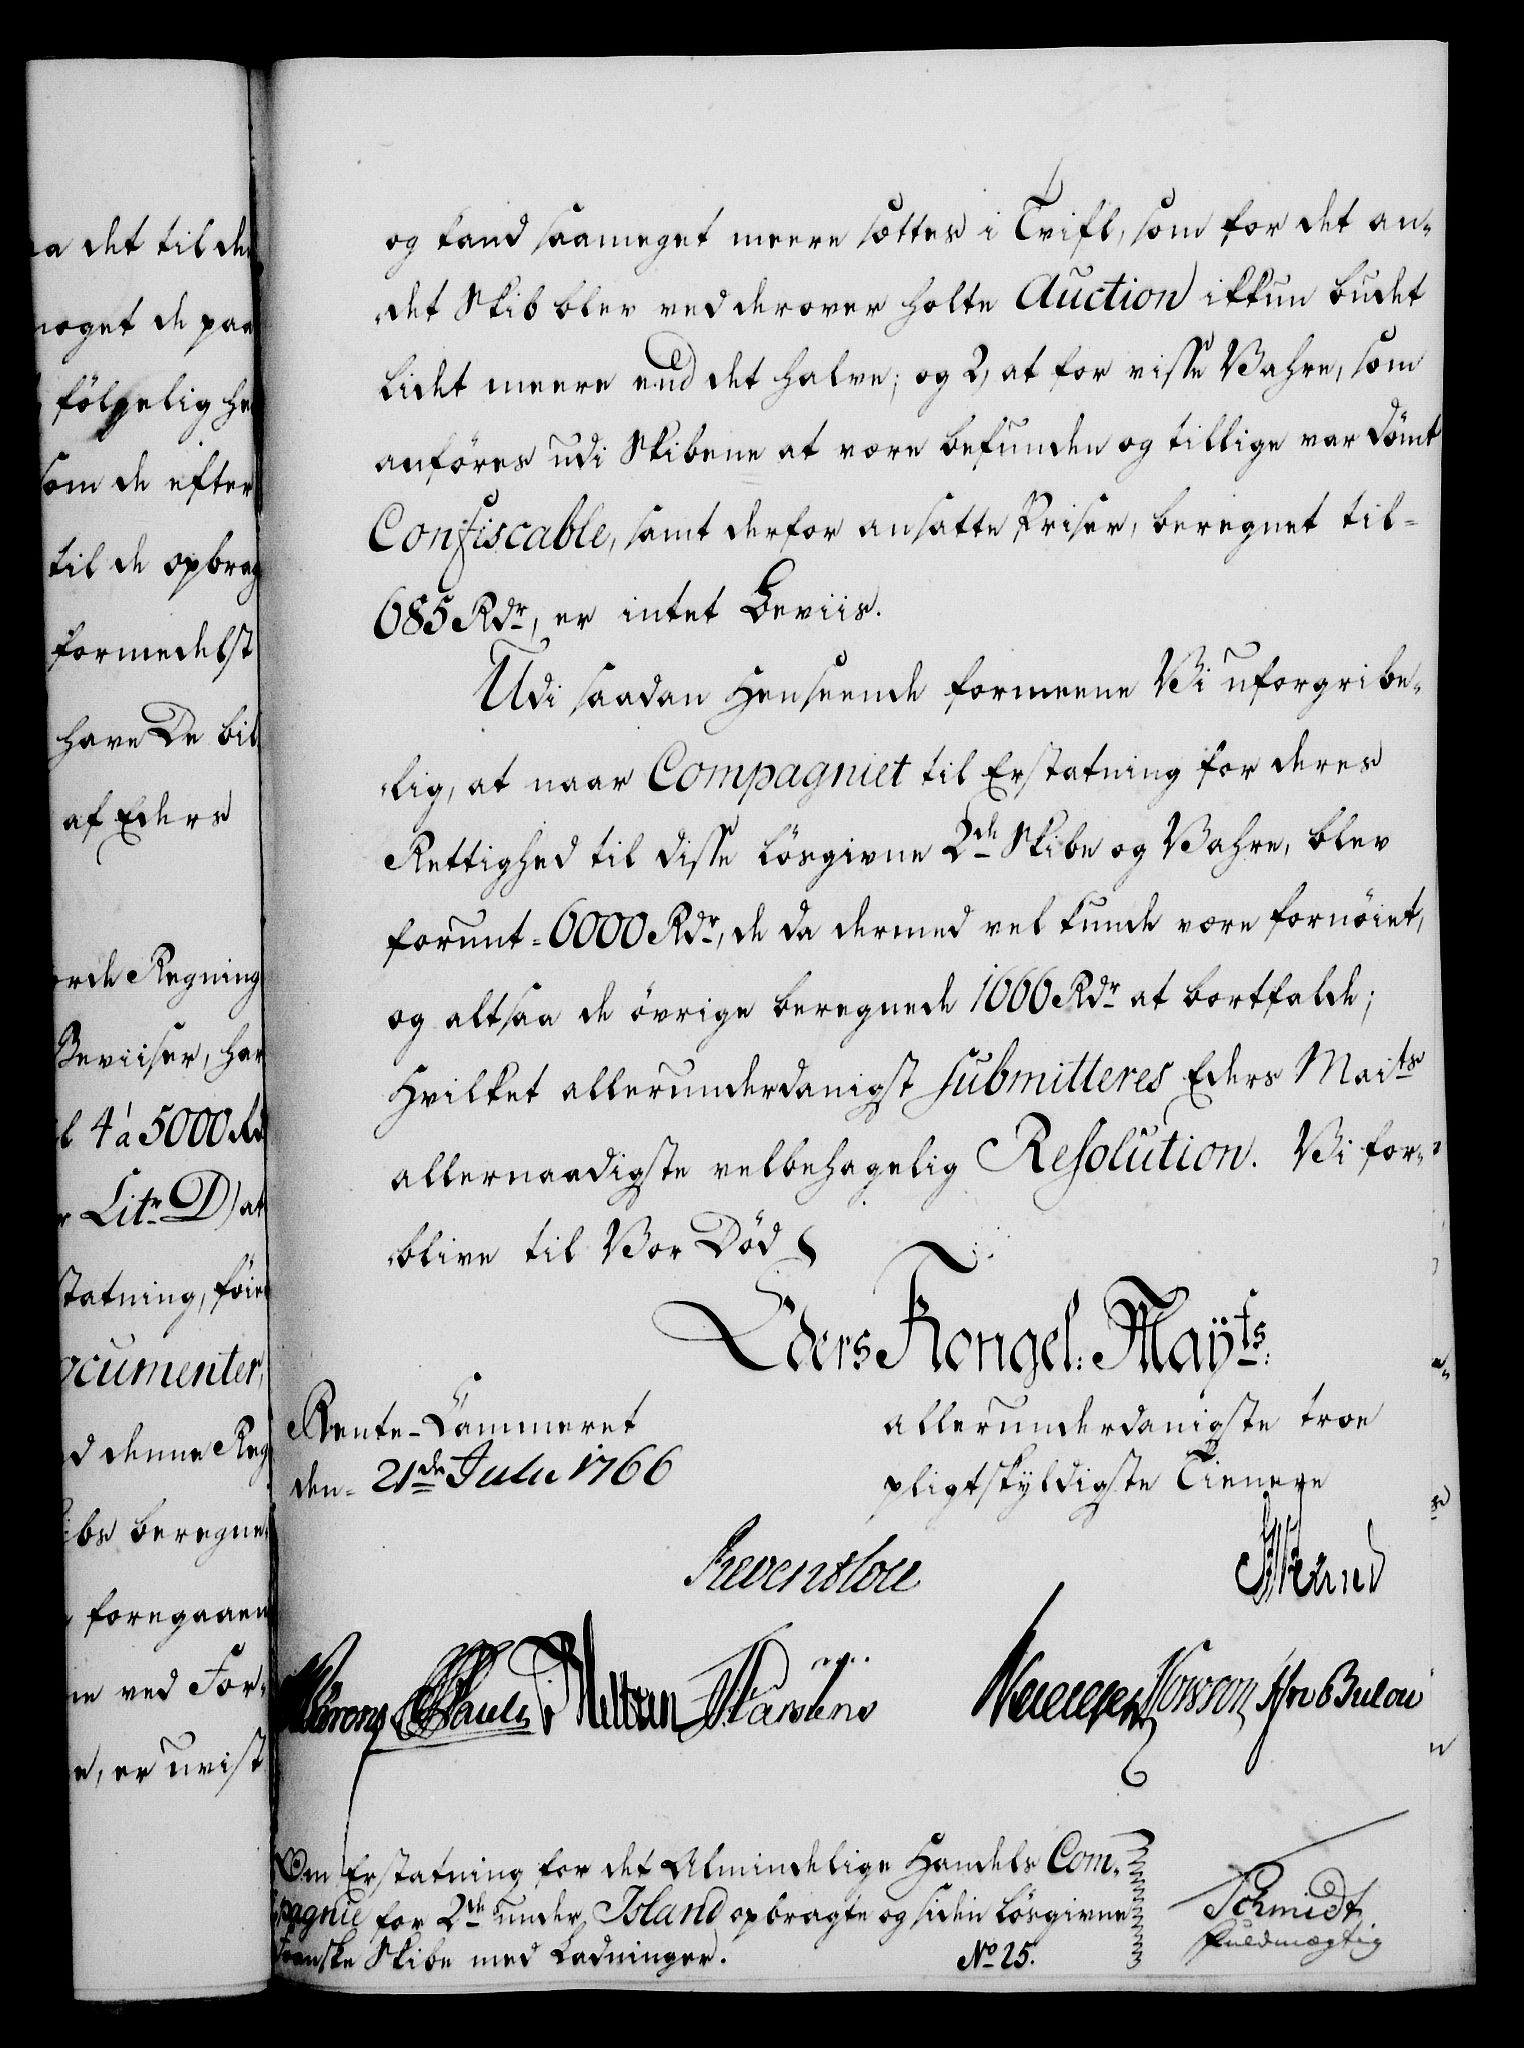 a det til de
noget de paa
fölgelig he
som de efter
til de opbrag
formedelst
have De bil
af Eders
orde Regning
Beviiser, har
l 4 á 5000 Rd
Litr. D) at
statning, föie
ocumenter,
d denne Reg
ibs beregne
foregaaen
ne ved For-
e, er uvist
og kand saameget meere sættes i Tvifl, som for det an-
det Skib blev ved derover holte Auction ikkun budet
lidet meere end det halve; og 2, at for visse Vahre, som
anföres udi Skibene at være befunden og tillige var dömt
Confiscable, samt derfor ansatte Priser, beregnet til-
685 Rdr, er intet Beviis.
Udi saadan Henseende formeene Vi uforgribe-
lig, at naar Compagniet til Erstatning for deres
Rettighed til disse lösgivne 2de Skibe og Vahre, blev
forunt- 6000 Rdr, de da dermed vel kunde være fornöiet,
og altsaa de övrige beregnede 1666 Rdr at bortfalde;
Hvilket allerunderdanigst submitteres Eders Maits
allernaadigste velbehagelig Resolution. Vi for-
blive til Vor Död
Eders Kongel: Mayts:
Rente-Cammeret
den- 21de Julii 1766
allerunderdanigste troe
pligtskyldigste Tienere
Reventlou
Karstens
Bulou
Om Erstatning for det Almindelige Handels Com-
pagnie for 2de under Island opbragte og siden lösgivne
Franske Skibe med Ladninger. No 25.
Schmidt
Fuldmægtig